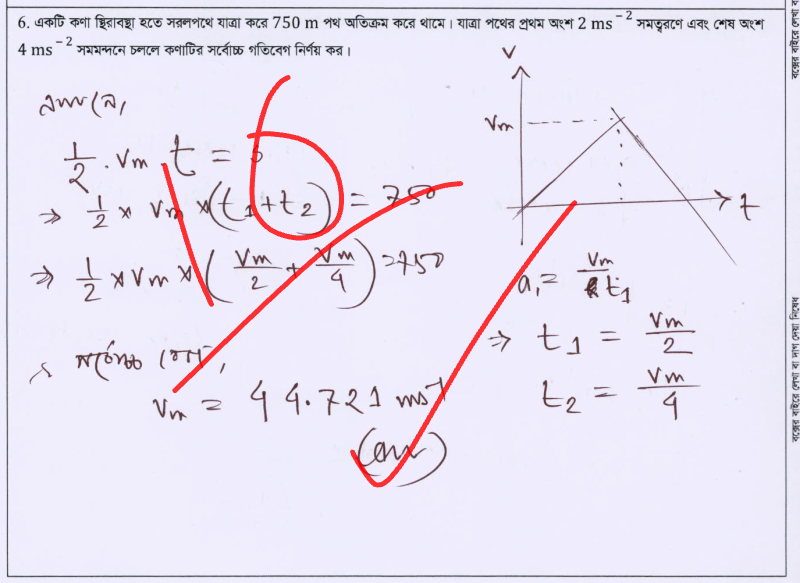 6. একটি কণা স্থিরাবস্থা হতে সরলপথে যাত্রা করে 750 m পথ অতিক্রম করে থামে। যাত্রা পথের প্রথম অংশ 2 ms⁻² সমত্বরণে এবং শেষ অংশ
4 ms⁻² সমমন্দনে চললে কণাটির সর্বোচ্চ গতিবেগ নির্ণয় কর।
1/2 . Vm t = s
⇒ 1/2 × Vm × (t1 + t2) = 750
⇒ 1/2 × Vm × (Vm/2 + Vm/4) = 750
Vm = 44.721 ms⁻¹
(Ans)
6
V
Vm
t
a1 = Vm/t1
⇒ t1 = Vm/2
t2 = Vm/4
বক্সের বাইরে লেখা বা দাগ দেয়া নিষেধ